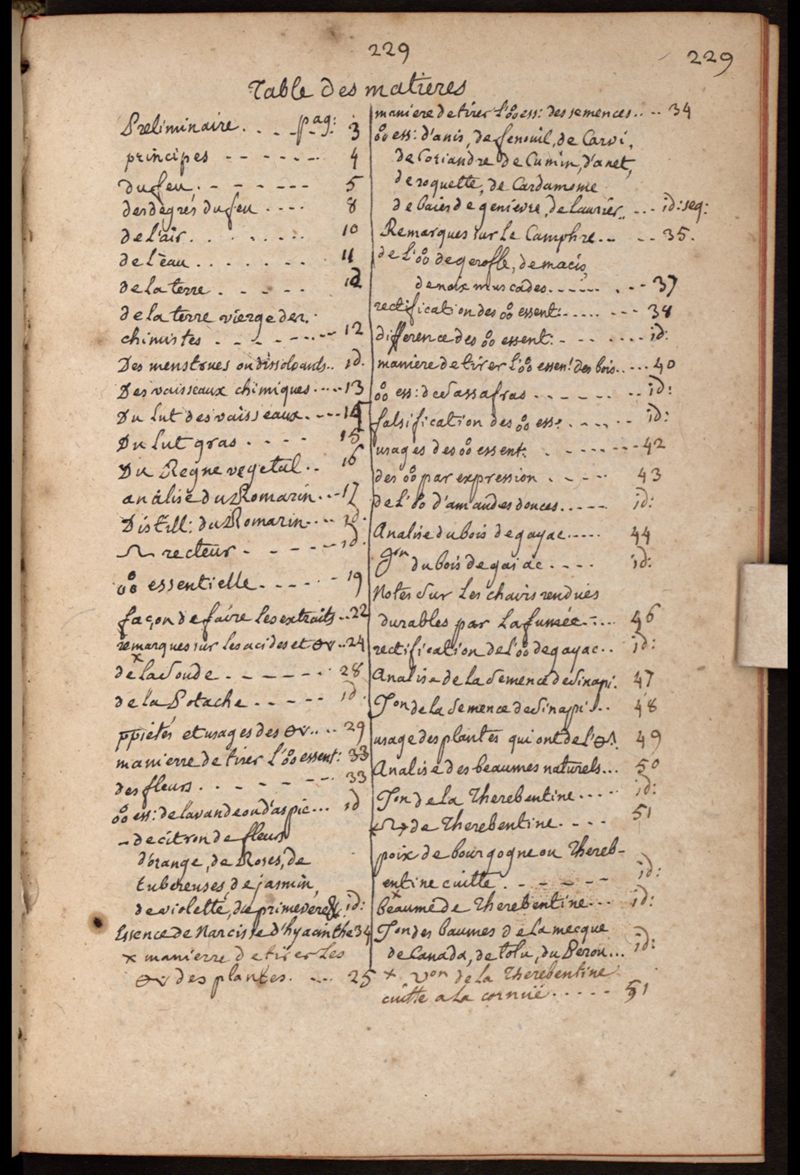 229
229
Table des matieres
pag:
Preliminaire. . . . . . 3
principes - - - . . . . 4
Du feu. - - - - - - 5
des degrés du feu . . . . 8
de l'air. . . . . . . . 10
de l'êau . . . . . . . 11
de la terre. - . - - . id
de la terre vierge des.
chimistes - - - - - - - 12
Des menstrues ou dissolvants.. id.
Des vaisseaux chimiques . . . . 13
Du Lut des vaisseaux. . - - 14
Du Lut gras . . . . 15
Du Regne vegetal . . 16
analise du Romarin. . - 17
Distill: du Romarin. . . . id.
recteur - . - - - - - id.
essentielle. - - - - - 19
façon de faire les extraits . . 22
remarques sur les acides et . . 24
de la Soude . - - - - - - 28
de la Potache - - . - - id.
ppiétés et usages des . . . 29
manierre de tirer l' essent: 33
des fleurs . . . - - - - - 33
ess: de lavande ou d'aspic . . . id
- de citron de fleurs
d'orange, de Roses, de
tubereuses, de jasmin,
de violette, de primevere & id:
Essence de Narcisse d'hyacinthe 34
x manierre de tirer les
des plantes. . - - 25
maniere de tirer l' ess: des semences. . . . 34
ess: d'anis, de fenouil, de Carvi,
de Coriandre de Cumin, d'anet,
de roquette, de Cardamome
de baies de genievre, de laurier. . . - - id: seq:
Remarques sur le Camphre . . . . . 35.
de l' de gerofle, de macis,
de noix muscades. . . . . . . . - - 37
rectification des essent: . . . . . . . 38
difference des essent: - - . . . . . id:
maniere de tirer l' essen! des bois. . . . . 40
ess: de Sassafras . . . . . . . . id:
falsification des ess. . . . . . id:
usages des essent. . . . . . - - - 42
des par expression . . - - - 43
de l' d'amandes douces. . . . . id:
Analise du bois de gayac . . . . . 44
du bois de gaiac . . . . id:
Notes Sur les chairs rendues
durables par la fumée - . . . 46
rectification de l' de gayac . . id:
Analise de la semence de Sinapi. 47
de la Semence de Sinapi . . . 48
usage des plantes qui ont de l' 49
Analise des beaumes naturels . . . 50
de la Therebentine . . . . id:
de Therebentine . . - . 51
poix de bourgogne ou Thereb-
entine cuitte . - - - - - id:
Beaume de Therebentine . . . id:
des baumes de la mecque
de Canada, de tolu, du Perou . . . id:
x de la Therebentine
cuitte a la cornuë . . . . . 51